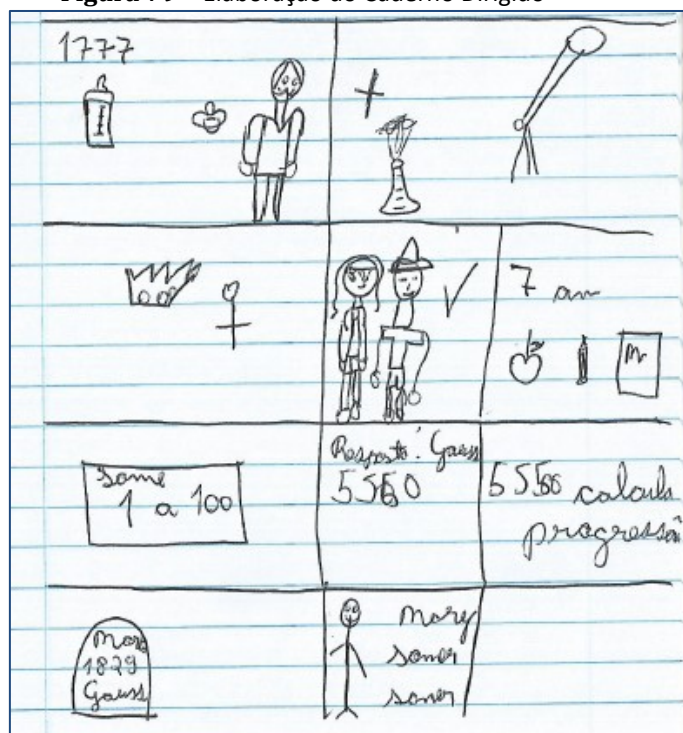 Figura 79 – Elaboração do Caderno Dirigido
1777
7 an
Some
1 a 100
Resposta: Gauss
5560
5550 calcula
progressão
Mor
1829
Gauss
Mary
somer
somer